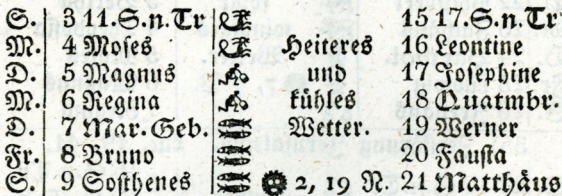 S. 3 11.S.n.Tr 15 17.S.n.Tr
M. 4 Moses Heiteres 16 Leontine
D. 5 Magnus und 17 Josephine
M. 6 Regina kühles 18 Quatmbr.
D. 7 Mar. Geb. Wetter. 19 Werner
Fr. 8 Bruno 20 Fausta
S. 9 Sosthenes 2, 19 N. 21 Matthäus